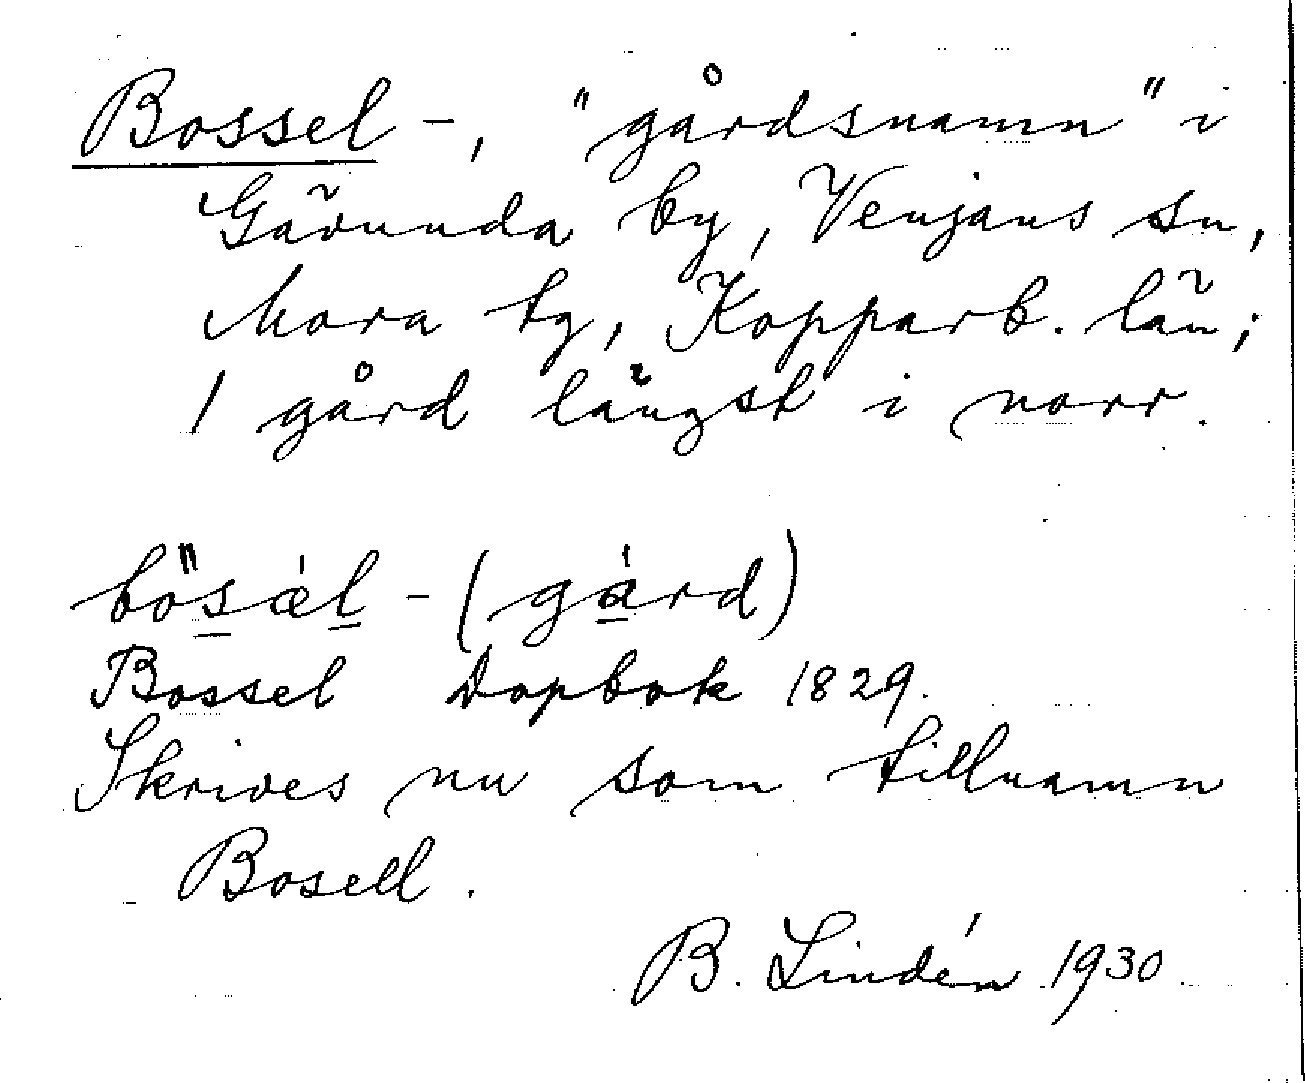 Bossel-, "gårdsnamn" i
Gävunda by, Venjans sn,
Mora tg, Kopparb. län;
1 gård längst i norr.
bösǽl-(gård)
Bossel Dopbok 1829.
Skrives nu som tillnamn
Bosell.
B. Lindén 1930